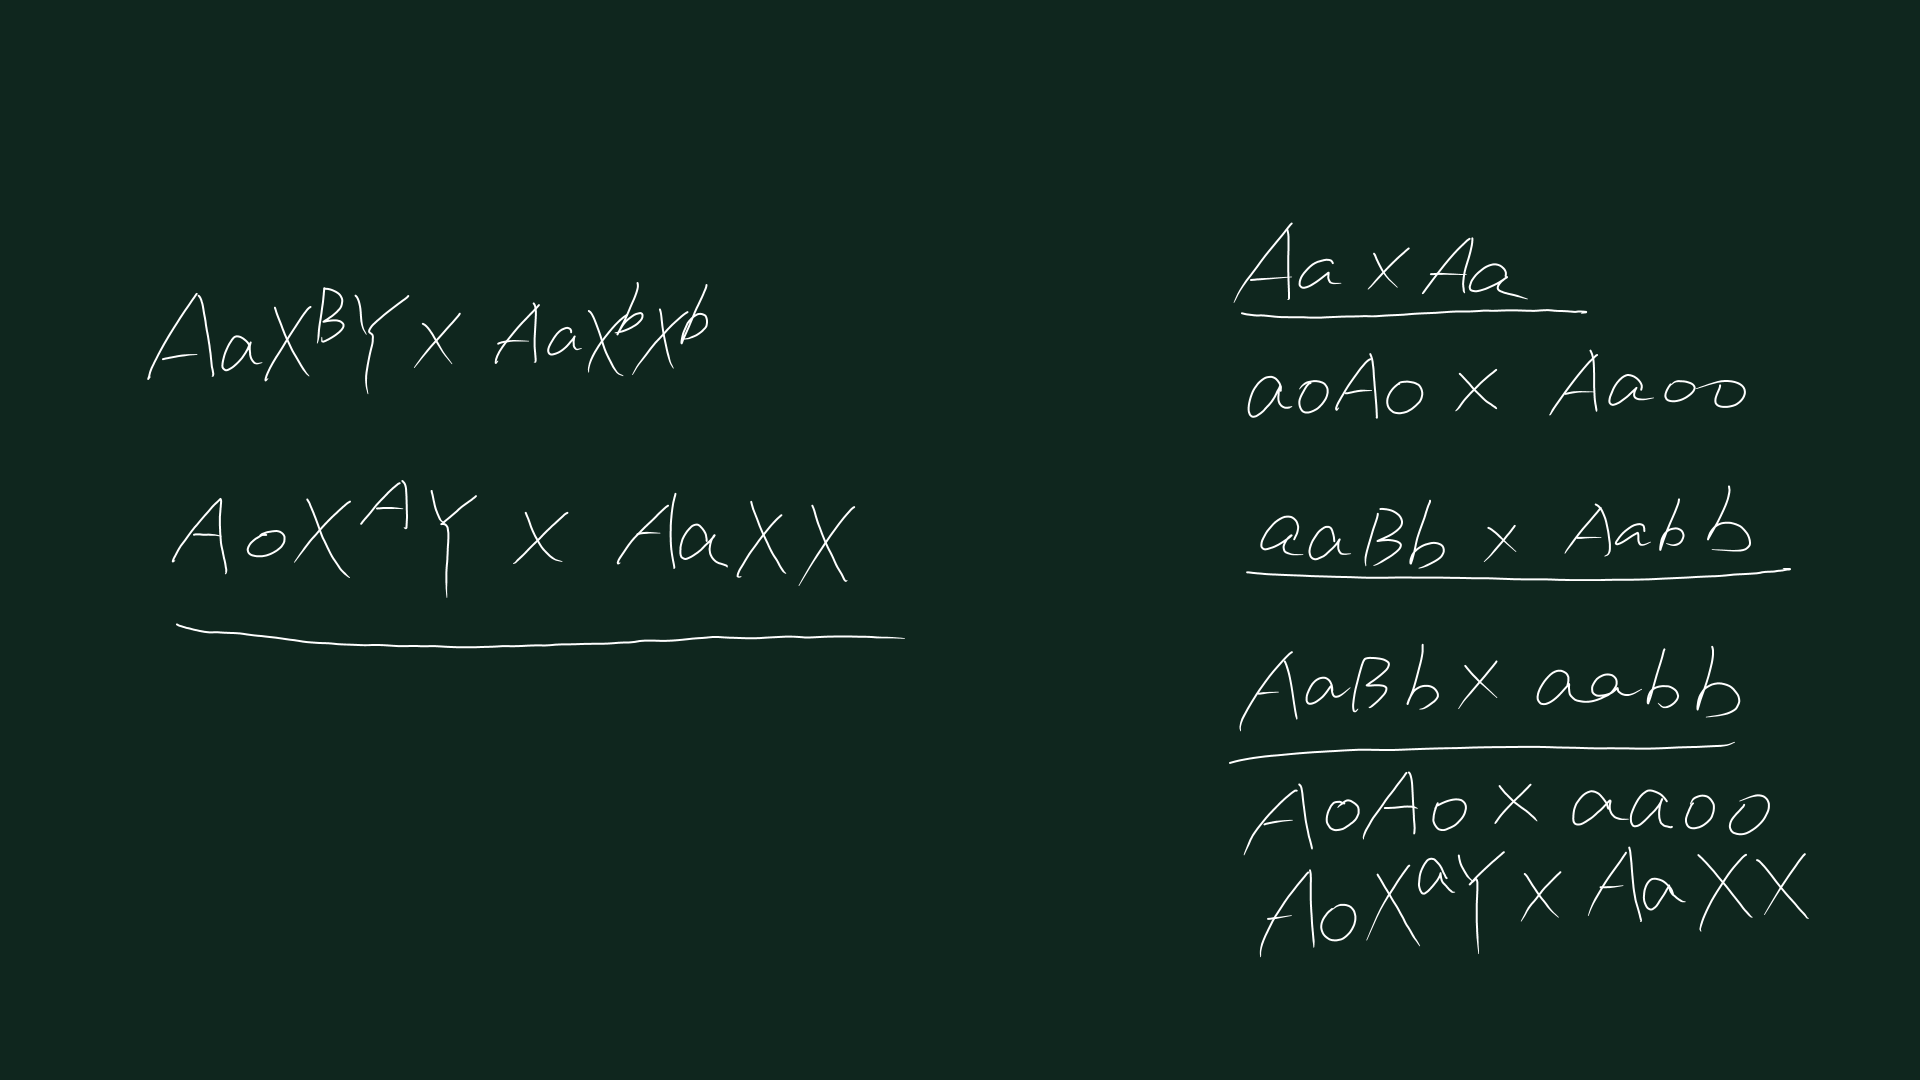 AaXᴮY × AaXᵇXᵇ
AoXᴬY × AaXX
Aa × Aa
aoAo × Aaoo
aaBb × Aabb
AaBb × aabb
AoAo × aaoo
AoXᵃY × AaXX